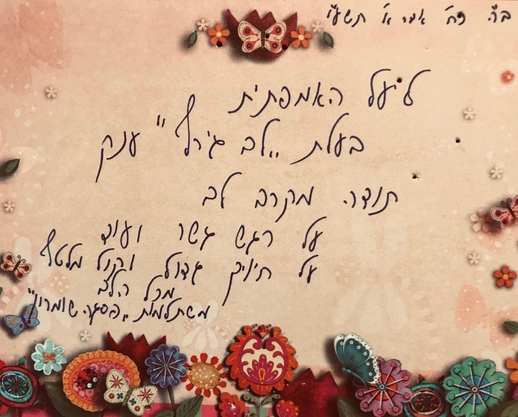 בה רח' אמר א' תשע"
ליעל האמפתית
בעלת "לב ג'ירף" ענק
תודה מקרב לב
על רגש גשר ועוד
על חיוך גדול וקול מלטף
מכל הלב
משתלמות "פסגה שומרון"